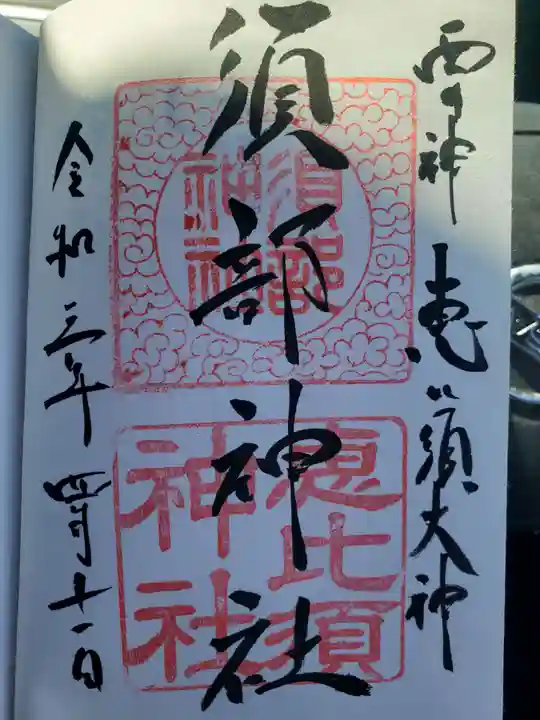 雷神 恵比須大神
須部神社
須部神社
恵比須神社
令和三年 四月十一日